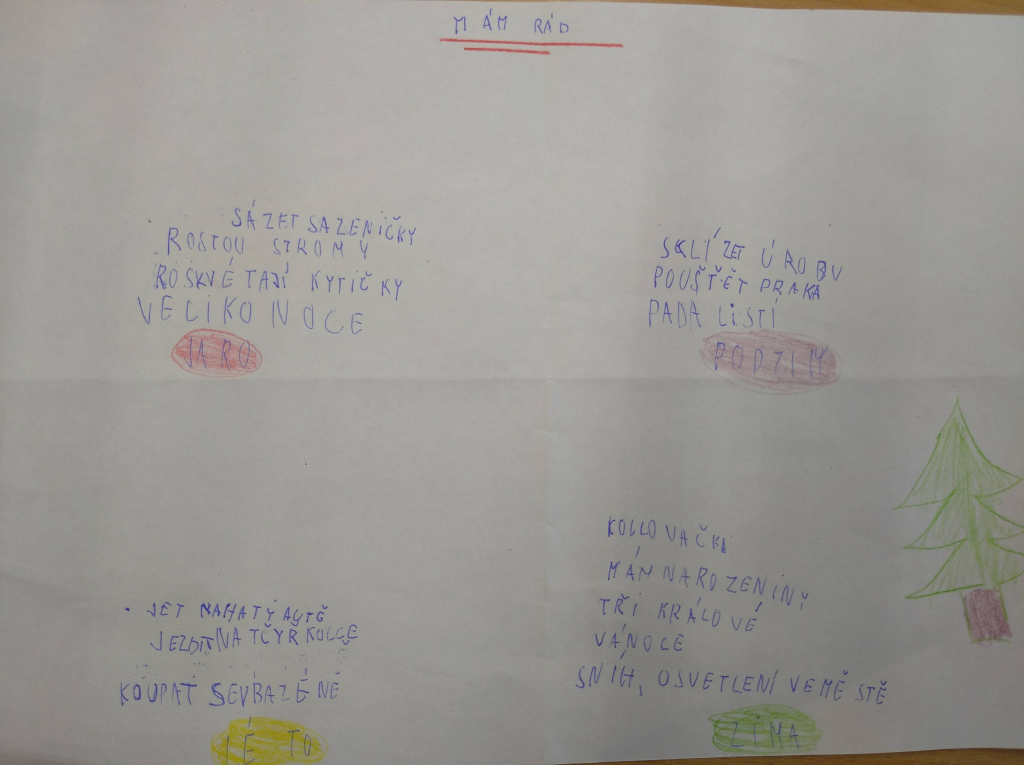 MÁM RÁD
SÁZET SAZENIČKY
ROSTOU STROMY
ROSKVÉTAJÍ KYTIČKY
VELIKONOCE
JARO
SKLÍZET ÚRODU
POUŠŤĚT PRAKA
PADA LISTÍ
PODZIM
JET NAHATÝ AUTĚ
JEZDIT NA TČYŘKOLCE
KOUPAT SEVBAZÉNĚ
LÉTO
KOULOVAČKA
MÁM NAROZENINY
TŘI KRÁLOVÉ
VÁNOCE
SNÍH, OSVETLENÍ VEMĚSTĚ
ZIMA